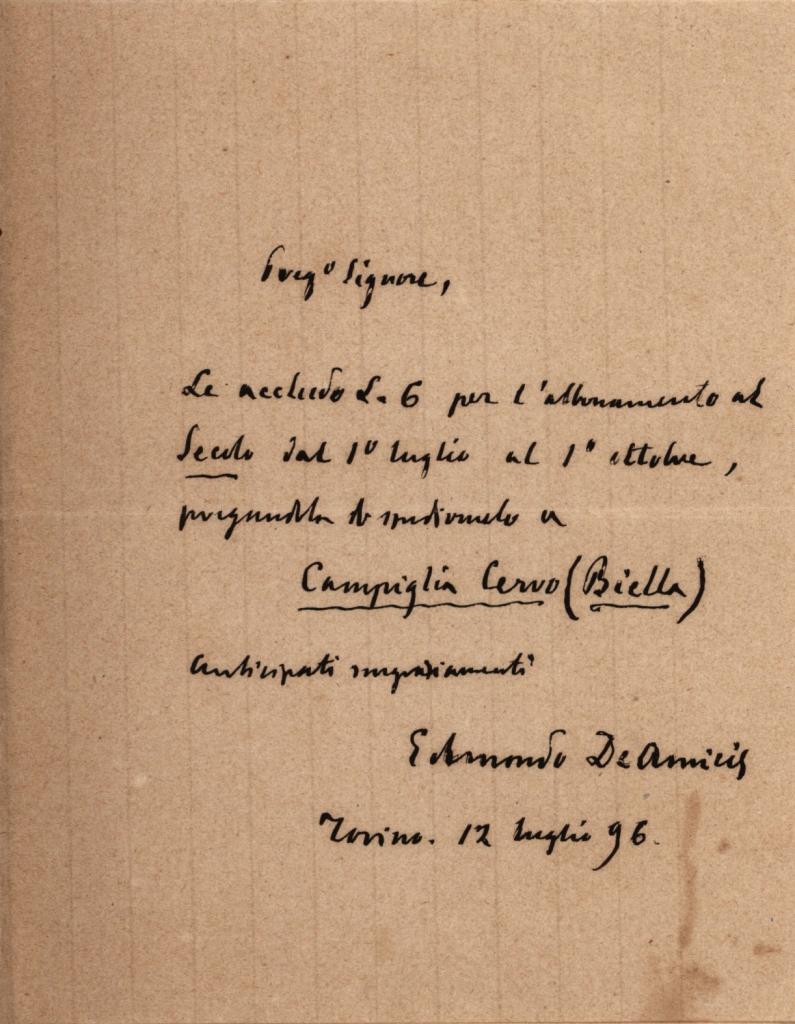 Preg° Signore,
Le accludo L. 6 per l'abbonamento al
Secolo dal 1° luglio al 1° ottobre,
pregandola di spedirmelo a
Campiglia Cervo (Biella)
Anticipati ringraziamenti
Edmondo De Amicis
Torino. 12 luglio 96.